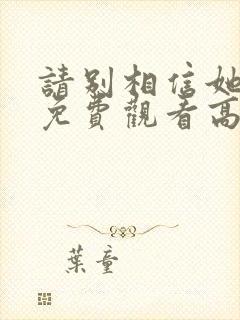 請別相信她
免費觀看高
葉童